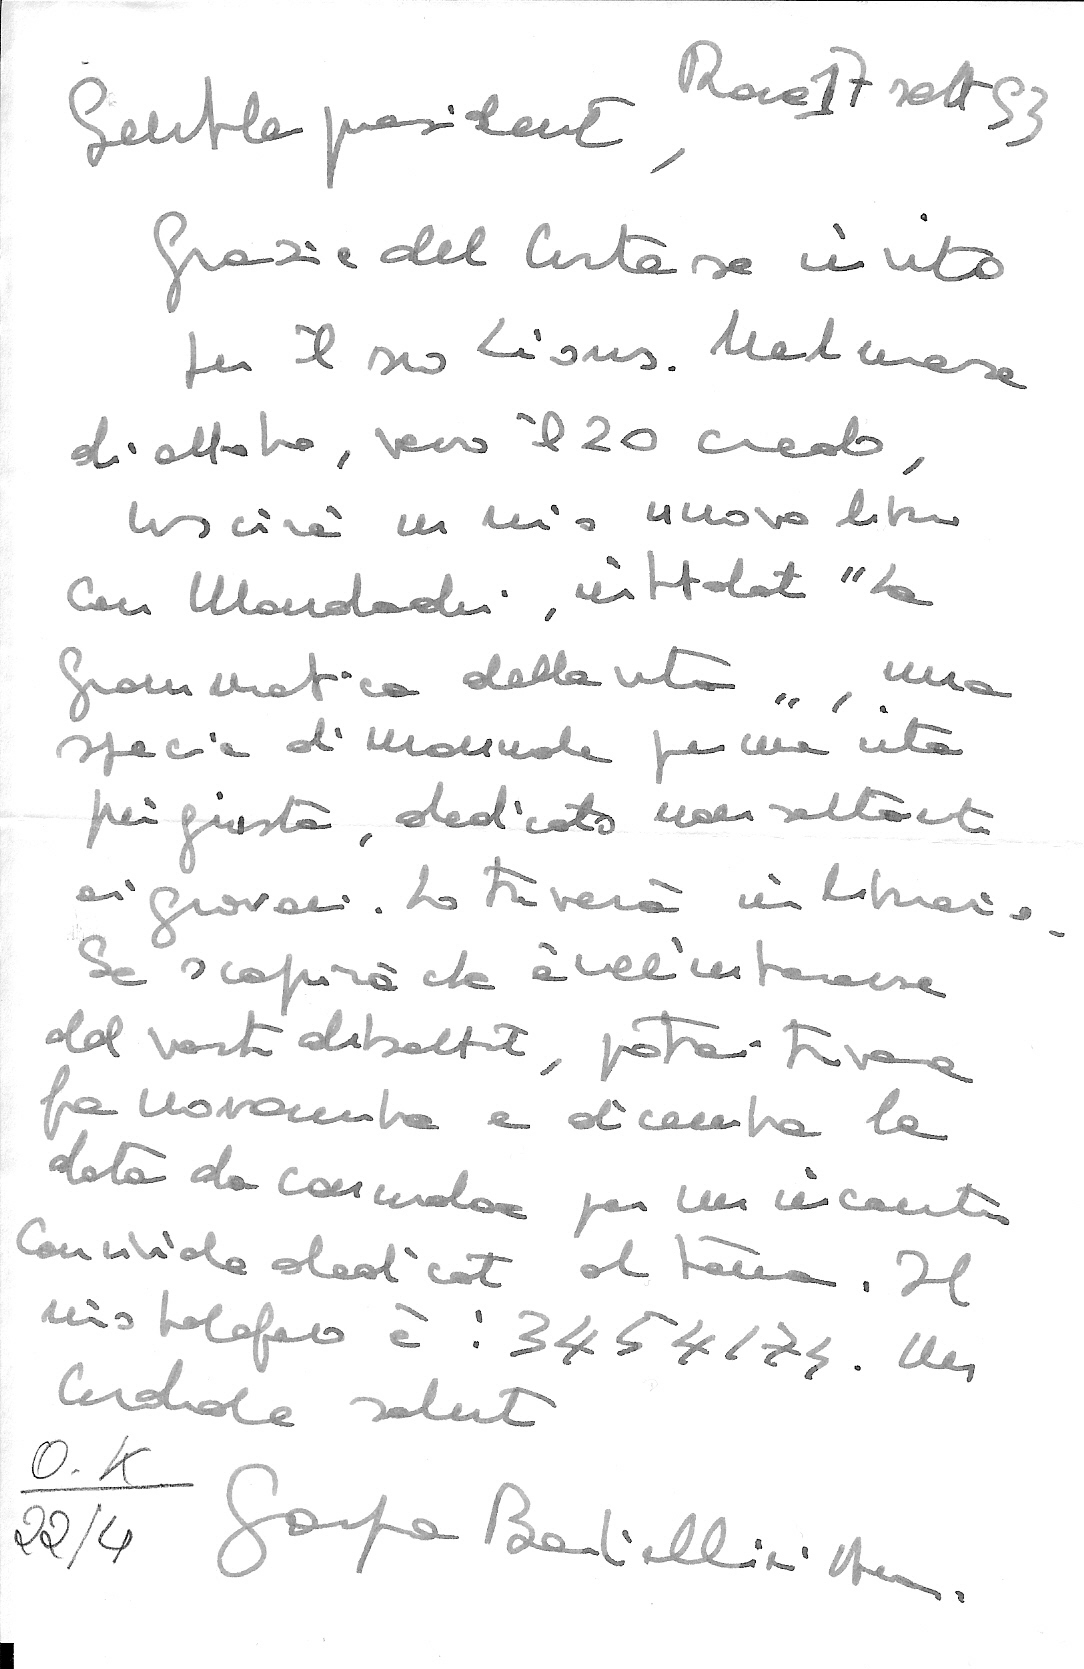 Roma 17 sett 93
Gentile presidente,
Grazie del cortese invito
per il suo Lions. Nel mese
di ottobre, verso il 20 credo,
uscirà un mio nuovo libro
con Mondadori, intitolato "La
grammatica della vita", una
specie di manuale per una vita
più giusta, dedicato non soltanto
ai giovani. Lo troverà in libreria.
Se scoprirà che è nell'interesse
del vostro dibattito, potrei trovare
fra novembre e dicembre la
data da concordare per un incontro
conviviale dedicato al tema. Il
mio telefono è: 3454174. Un
cordiale saluto
O.K
22/4
Gaspare Barbiellini Amidei